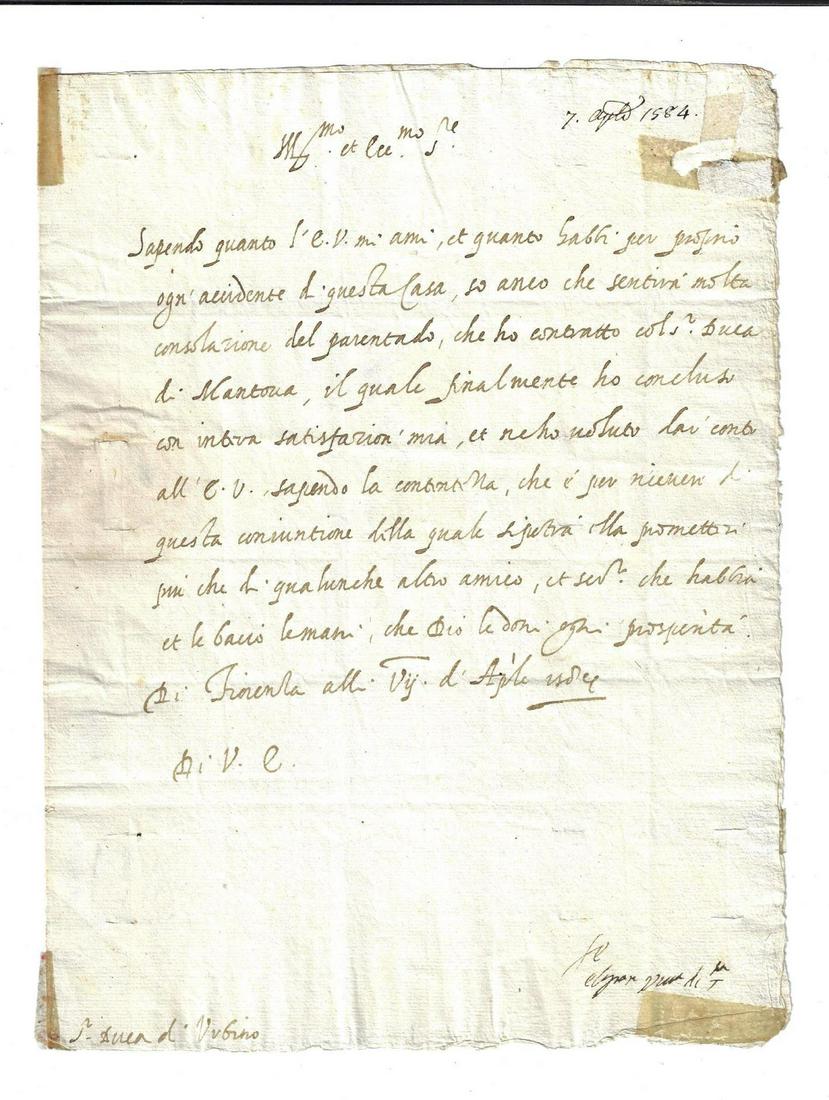 7. Aple 1584.
Ill.mo et Ecc.mo S.re
Sapendo quanto l'E.V. mi ami, et quanto habbi per proprio
ogn'accidente di questa Casa, so anco che sentirà molta
consolazione del parentado, che ho contratto col S.r Duca
di Mantova, il quale finalmente ho concluso
con intera satisfazion' mia, et ne ho voluto dar' conto
all'E.V. sapendo la contentezza, che è per ricever di
questa coniuntione della quale si potrà ella prometter
più che di qualunche altro amico, et ser.re che habbia
et le bacio le mani, che Dio le doni ogni prosperità.
Di Fiorenza alli Vij. d'Ap'le 1584
Di V. E.
Se.
el gran Duca di T.na
S.r Duca d'Urbino